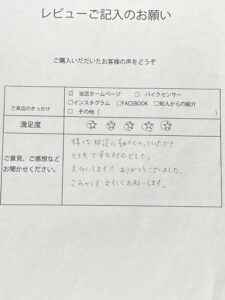 レビューご記入のお願い
ご購入いただいたお客様の声をどうぞ
ご来店のきっかけ
☑ 当店ホームページ □ バイクセンサー
□インスタグラム □FACEBOOK □知人からの紹介
□ その他( )
満足度
☆ ☆ ☆ ☆ ☆
ご意見、ご感想など
お聞かせください。
様々な相談に
とても丁寧な対応でした。
大切にします!! ありがとうございました。
これからも よろしくお願いします。